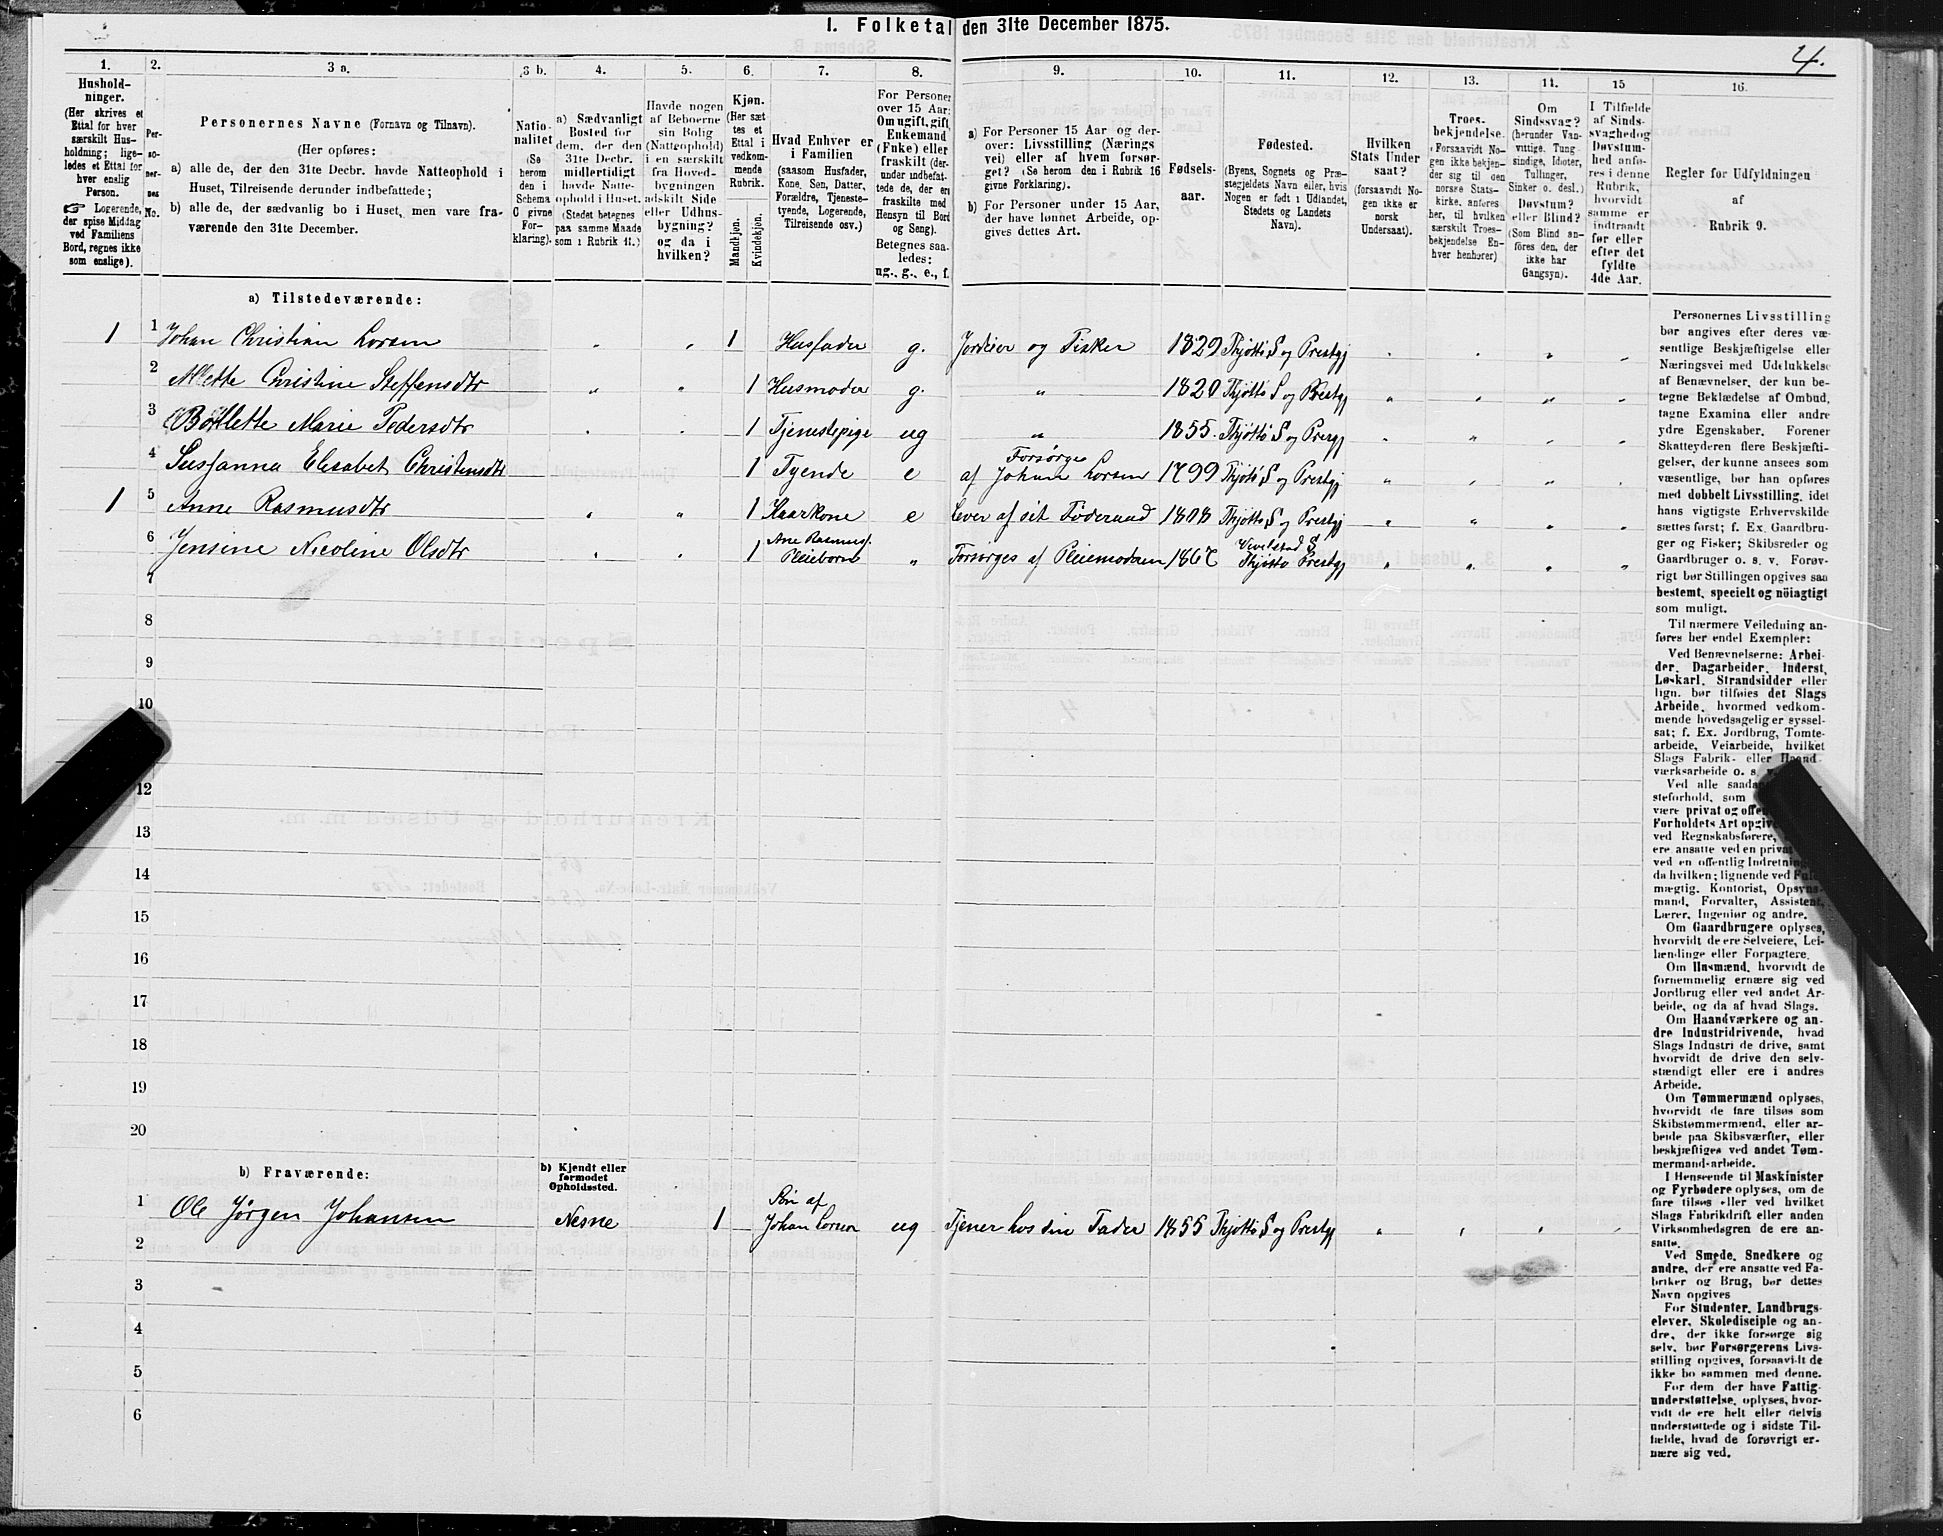 1. Folketal den 31te December 1875.
4.
1.
2.
3 a.
3 b.
4.
5.
6.
7.
8.
9.
10.
11.
12.
13.
14.
15
16.
Hushold-
ninger.
(Her skrives et
Ettal for hver
særskilt Hus-
holdning; lige-
ledes et Ettal for
hver enslig
Person.
☞ Logerende,
der spise Middag
ved Familiens
Bord, regnes ikke
som enslige).
Per-
so-
ner-
nes
No.
Personernes Navne (Fornavn og Tilnavn).
(Her opføres:
a) alle de, der den 31te Decbr. havde Natteophold i
Huset, Tilreisende derunder indbefattede;
b) alle de, der sædvanlig bo i Huset, men vare fra-
værende den 31te December.
Natio-
nalitet
(Se
herom
den i
Schema
C givne
For-
klaring).
a) Sædvanligt
Bosted for
dem, der den
31te Decbr.
midlertidigt
havde Natte-
ophold i Huset.
(Stedet betegnes
paa samme Maade
som i Rubrik 11.)
Havde nogen
af Beboerne
sin Bolig
(Natteophold)
i en særskilt
fra Hoved-
bygningen
adskilt Side
eller Udhus-
bygning?
og da i
hvilken?
Kjøn.
(Her sæt-
tes et
Ettal i
vedkom-
mende
Rubrik.
Mandkjøn.
Kvindekjøn.
Hvad Enhver er
i Familien
(saasom Husfader,
Kone, Søn, Datter,
Forældre, Tjeneste-
tyende, Logerende,
Tilreisende osv.)
For Personer
over 15 Aar:
Om ugift, gift,
Enkemand
(Enke) eller
fraskilt (der-
under indbefat-
tede de, der ere
fraskilte med
Hensyn til Bord
og Seng).
Betegnes saa-
ledes:
ug., g., e., f.
a) For Personer 15 Aar og der-
over: Livsstilling (Nærings
vei) eller af hvem forsør-
get? (Se herom den i Rubrik 16
givne Forklaring).
b) For Personer under 15 Aar,
der have lønnet Arbeide, op-
gives dettes Art.
Fødsels-
aar.
Fødested.
(Byens, Sognets og Præ-
stegjeldets Navn eller, hvis
Nogen er født i Udlandet,
Stedets og Landets
Navn).
Hvilken
Stats Under
saat?
(forsaavidt No-
gen ikke er
norsk
Undersaat).
Troes-
bekjendelse.
(Forsaavidt No-
gen ikke bekjen-
der sig til den
norske Stats-
kirke, anføres
her, til hvilken
særskilt Troes-
bekjendelse En-
hver henhører)
Om
Sindssvag?
(herunder Van-
vittige, Tung-
sindige, Idioter,
Tullinger,
Sinker o. desl.)
Døvstum?
eller Blind?
(Som Blind an-
føres den, der
ikke har
Gangsyn).
I Tilfælde
af Sinds-
svaghed og
Døvstum-
hed anfø-
res i denne
Rubrik,
hvorvidt
samme er
indtraadt
før eller
efter det
fyldte
4de Aar.
Regler for Udfyldningen
af
Rubrik 9.
a) Tilstedeværende:
1 1 Johan Christian Lorsen " " 1 Husfader g. Jordeier og Fisker 1829 Thjøttø S og Prestgj " " " "
2 Mette Christine Steffensdtr " " 1 Husmoder g. " 1820 Thjøttø S og Prestgj " " " "
3 Bollette Marie Pedersdtr " " 1 Tjenestepige ug " 1855. Thjøttø S og Presgj " " " "
4 Susanna Elisabet Christensdtr 1 Tyende e Forsørges af Johan Lorsen 1799 Thjøttø S og Prestgj " " " "
1 5 Anne Rasmusdtr " " 1 Kaarkone e Lever af sit Føderaad 1808 Thjøttø S og Prestgj " " " "
6 Jensine Nicoline Olsdtr " " 1 Ane Rasmus. Pleiebarn " Forsørges af Pleiemoderen 1867 Vevelstad S Thjøttø Prestgj " " " "
7
8
9
10
12
13
14
15
16
17
18
19
20
b) Fraværende:
b) Kjendt eller
formodet
Opholdssted.
1 Ole Jørgen Johansen Nesne 1 Søn af Johan Lorsen ug Tjener hos sin Fader 1855 Thjøttø S og Prestgj " " " "
2
3
4
5
6
Personernes Livsstilling
bør angives efter deres væ-
sentlige Beskjæftigelse eller
Næringsvei med Udelukkelse
af Benævnelser, der kun be-
tegne Beklædelse af Ombud,
tagne Examina eller andre
ydre Egenskaber. Forener
Skatteyderen flere Beskjæfti-
gelser, der kunne ansees som
væsentlige, bør han opføres
med dobbelt Livsstilling, idet
hans vigtigste Erhvervskilde
sættes først; f. Ex. Gaardbru-
ger og Fisker; Skibsreder og
Gaardbruger o. s. v. Forøv-
rigt bør Stillingen opgives saa
bestemt, specielt og nöiagtigt
som muligt.
Til nærmere Veiledning an-
føres her endel Exempler:
Ved Benævnelserne: Arbei-
der, Dagarbeider, Inderst,
Løskarl, Strandsidder eller
lign. bør tilføies det Slags
Arbeide, hvormed vedkom-
mende hovedsagelig er syssel-
sat; f. Ex. Jordbrug, Tomte-
arbeide, Veiarbeide, hvilket
Slags Fabrik- eller Haand-
værksarbeide o. s. v.
Ved alle saada
steforhold, som
være privat og off
Forholdets Art opgive
ved Regnskabsførere,
ere ansatte ved en privat
ved en offentlig Indretning
da hvilken; lignende ved Fuld
mægtig, Kontorist, Opsyns-
mand, Forvalter, Assistent,
Lærer, Ingeniør og andre.
Om Gaardbrugere oplyses,
hvorvidt de ere Selveiere, Lei-
lændinge eller Forpagtere.
Om Husmænd, hvorvidt de
fornemmelig ernære sig ved
Jordbrug eller ved andet Ar-
beide, og da af hvad Slags.
Om Haandværkere og an-
dre Industridrivende, hvad
Slags Industri de drive, samt
hvorvidt de drive den selv-
stændigt eller ere i andres
Arbeide.
Om Tømmermænd oplyses,
hvorvidt de fare tilsøs som
Skibstømmermænd, eller ar-
beide paa Skibsværfter, eller
beskjæftiges ved andet Tøm-
mermand-arbeide.
I Henseende til Maskinister
og Fyrbødere oplyses, om de
fare tilsøs eller ved hvilket
Slags Fabrikdrift eller anden
Virksomhedsgren de ere an-
satte.
Ved Smede, Snedkere og
andre, der ere ansatte ved Fa-
briker og Brug, bør dettes
Navn opgives
For Studenter, Landbrugs-
elever, Skoledisciple og an-
dre, der ikke forsørge sig
selv, bør Forsørgerens Livs-
stilling opgives, forsaavidt de
ikke bo sammen med denne.
For dem, der have Fattig-
understøttelse, oplyses, hvor-
vidt de ere helt eller delvis
understøttede og i sidste Til-
fælde, hvad de forøvrigt er-
nære sig ved.